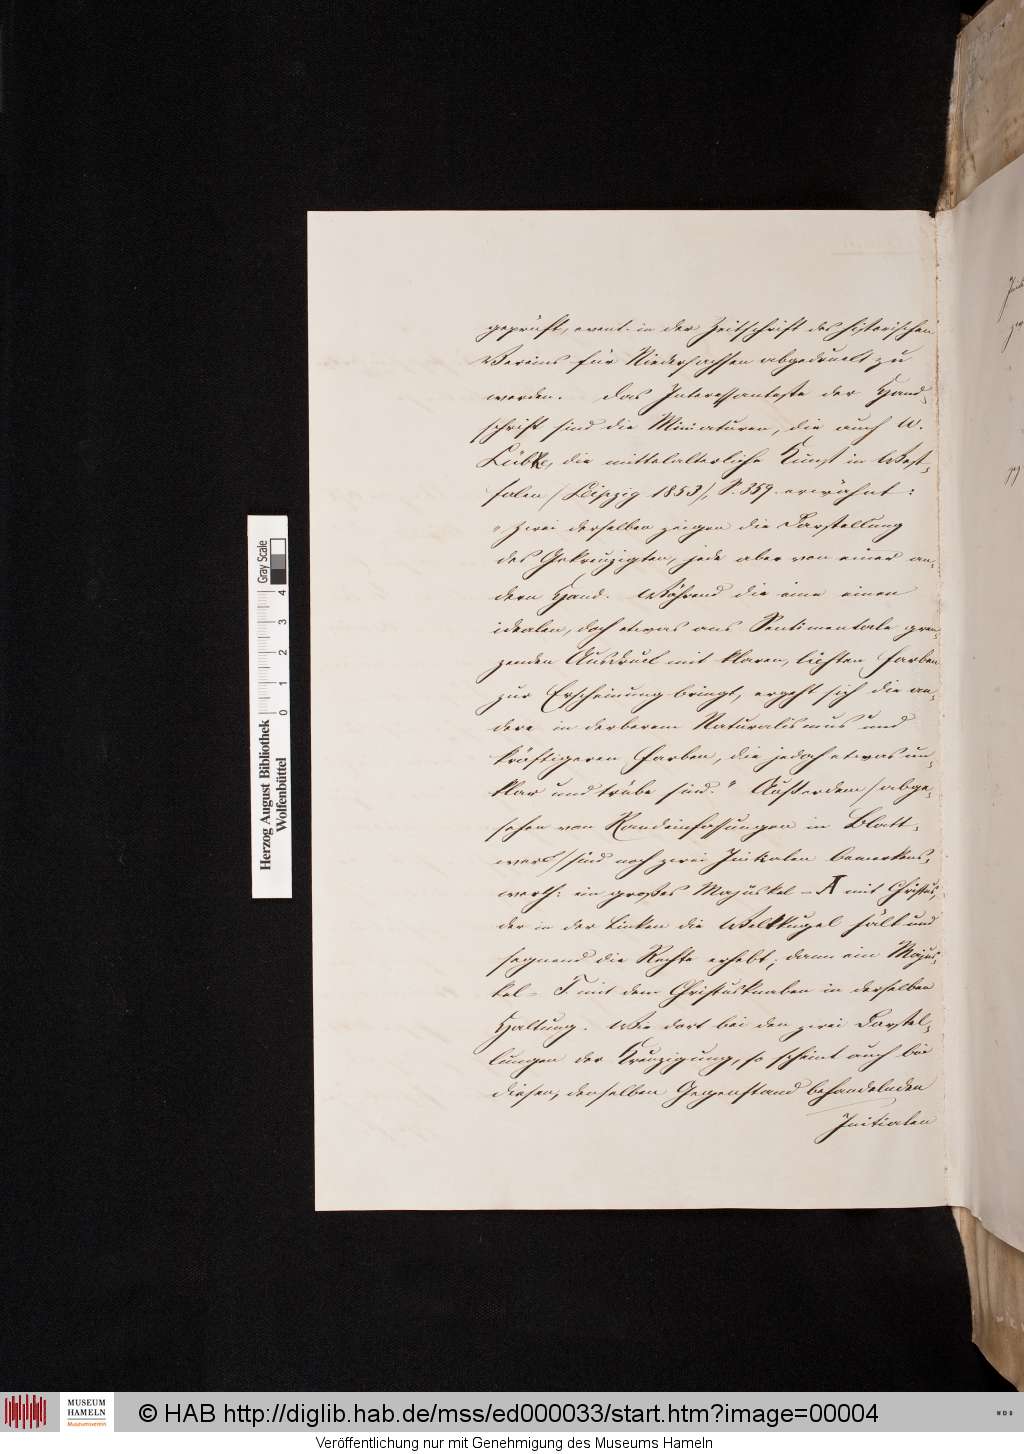 geprüft, event. in der Zeitschrift des historischen
Vereins für Niedersachsen abgedruckt zu
werden. Das Interessanteste der Hand-
schrift sind die Miniaturen, die auch W.
Lübke, die mittelalterliche Kunst in West-
falen (Leipzig 1853), S. 359 erwähnt:
"Zwei derselben zeigen die Darstellung
des Gekreuzigten, jede aber von einer an-
dern Hand. Während die eine einen
idealen, doch etwas ans Sentimentale gren-
zenden Ausdruck mit klaren, lichten Farben
zur Erscheinung bringt, ergeht sich die an-
dere in derberem Naturalismus und
kräftigeren Farben, die jedoch etwas un-
klar und trübe sind." Außerdem (abge-
sehen von Randeinfassungen in Blatt-
werk) sind noch zwei Initialen bemerkens-
werth: ein großes Majuskel-A mit Christus,
der in der Linken die Weltkugel hält und
segnend die Rechte erhebt; dann ein Majus-
kel- T. mit dem Christusknaben in derselben
Haltung. Wie dort bei den zwei Darstel-
lungen der Kreuzigung, so scheint auch bei
diesen, denselben Gegenstand behandelnden
Initialen
Herzog August Bibliothek
Wolfenbüttel
0 1 2 3 4
Gray Scale
MUSEUM
HAMELN
Museumsverein
© HAB http://diglib.hab.de/mss/ed000033/start.htm?image=00004
Veröffentlichung nur mit Genehmigung des Museums Hameln